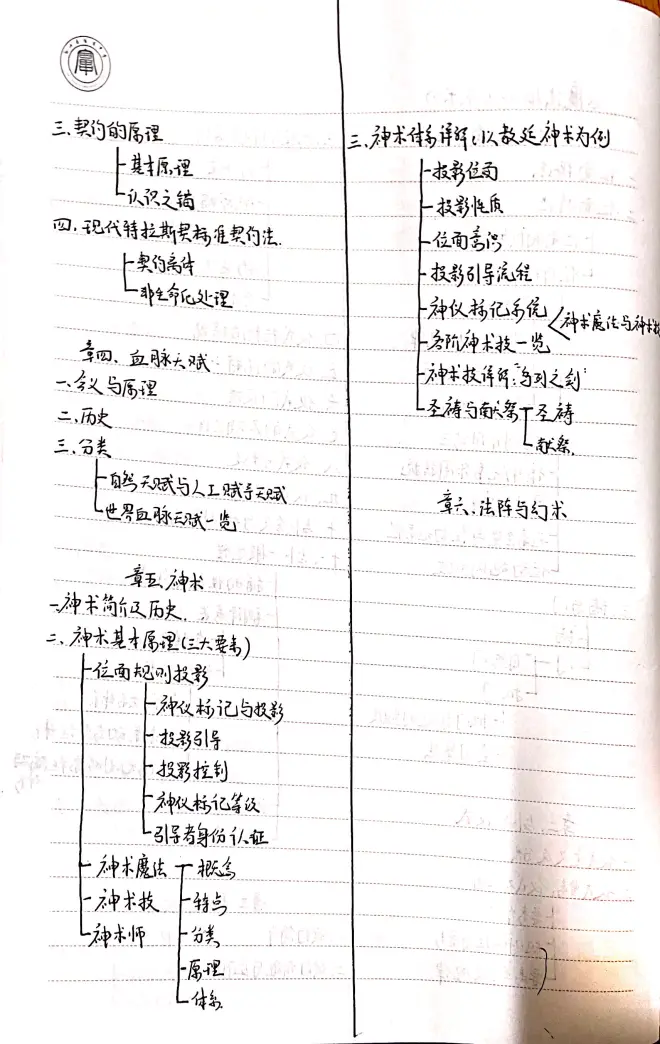 三、契约的原理
基本原理
认识之锚
四、现代特拉斯契标准契约法
契约条件
非生命化处理
章四、血脉天赋
一、含义与原理
二、历史
三、分类
自然天赋与人工赋予天赋
世界血脉天赋一览
章五、神术
一、神术简介及历史
二、神术基本原理(三大要素)
位面规则投影
神仪标记与投影
投影引导
投影控制
神仪标记等级
引导者身份认证
神术魔法
神术技
神术师
概念
特点
分类
原理
体系
三、神术体系详解:以教廷神术为例
投影位面
投影性质
位面意识
投影引导流程
神仪标记系统
各阶神术技一览
神术魔法与神术技
神术技详解:"之剑"
圣祷与献祭
圣祷
献祭
章六、法阵与幻术